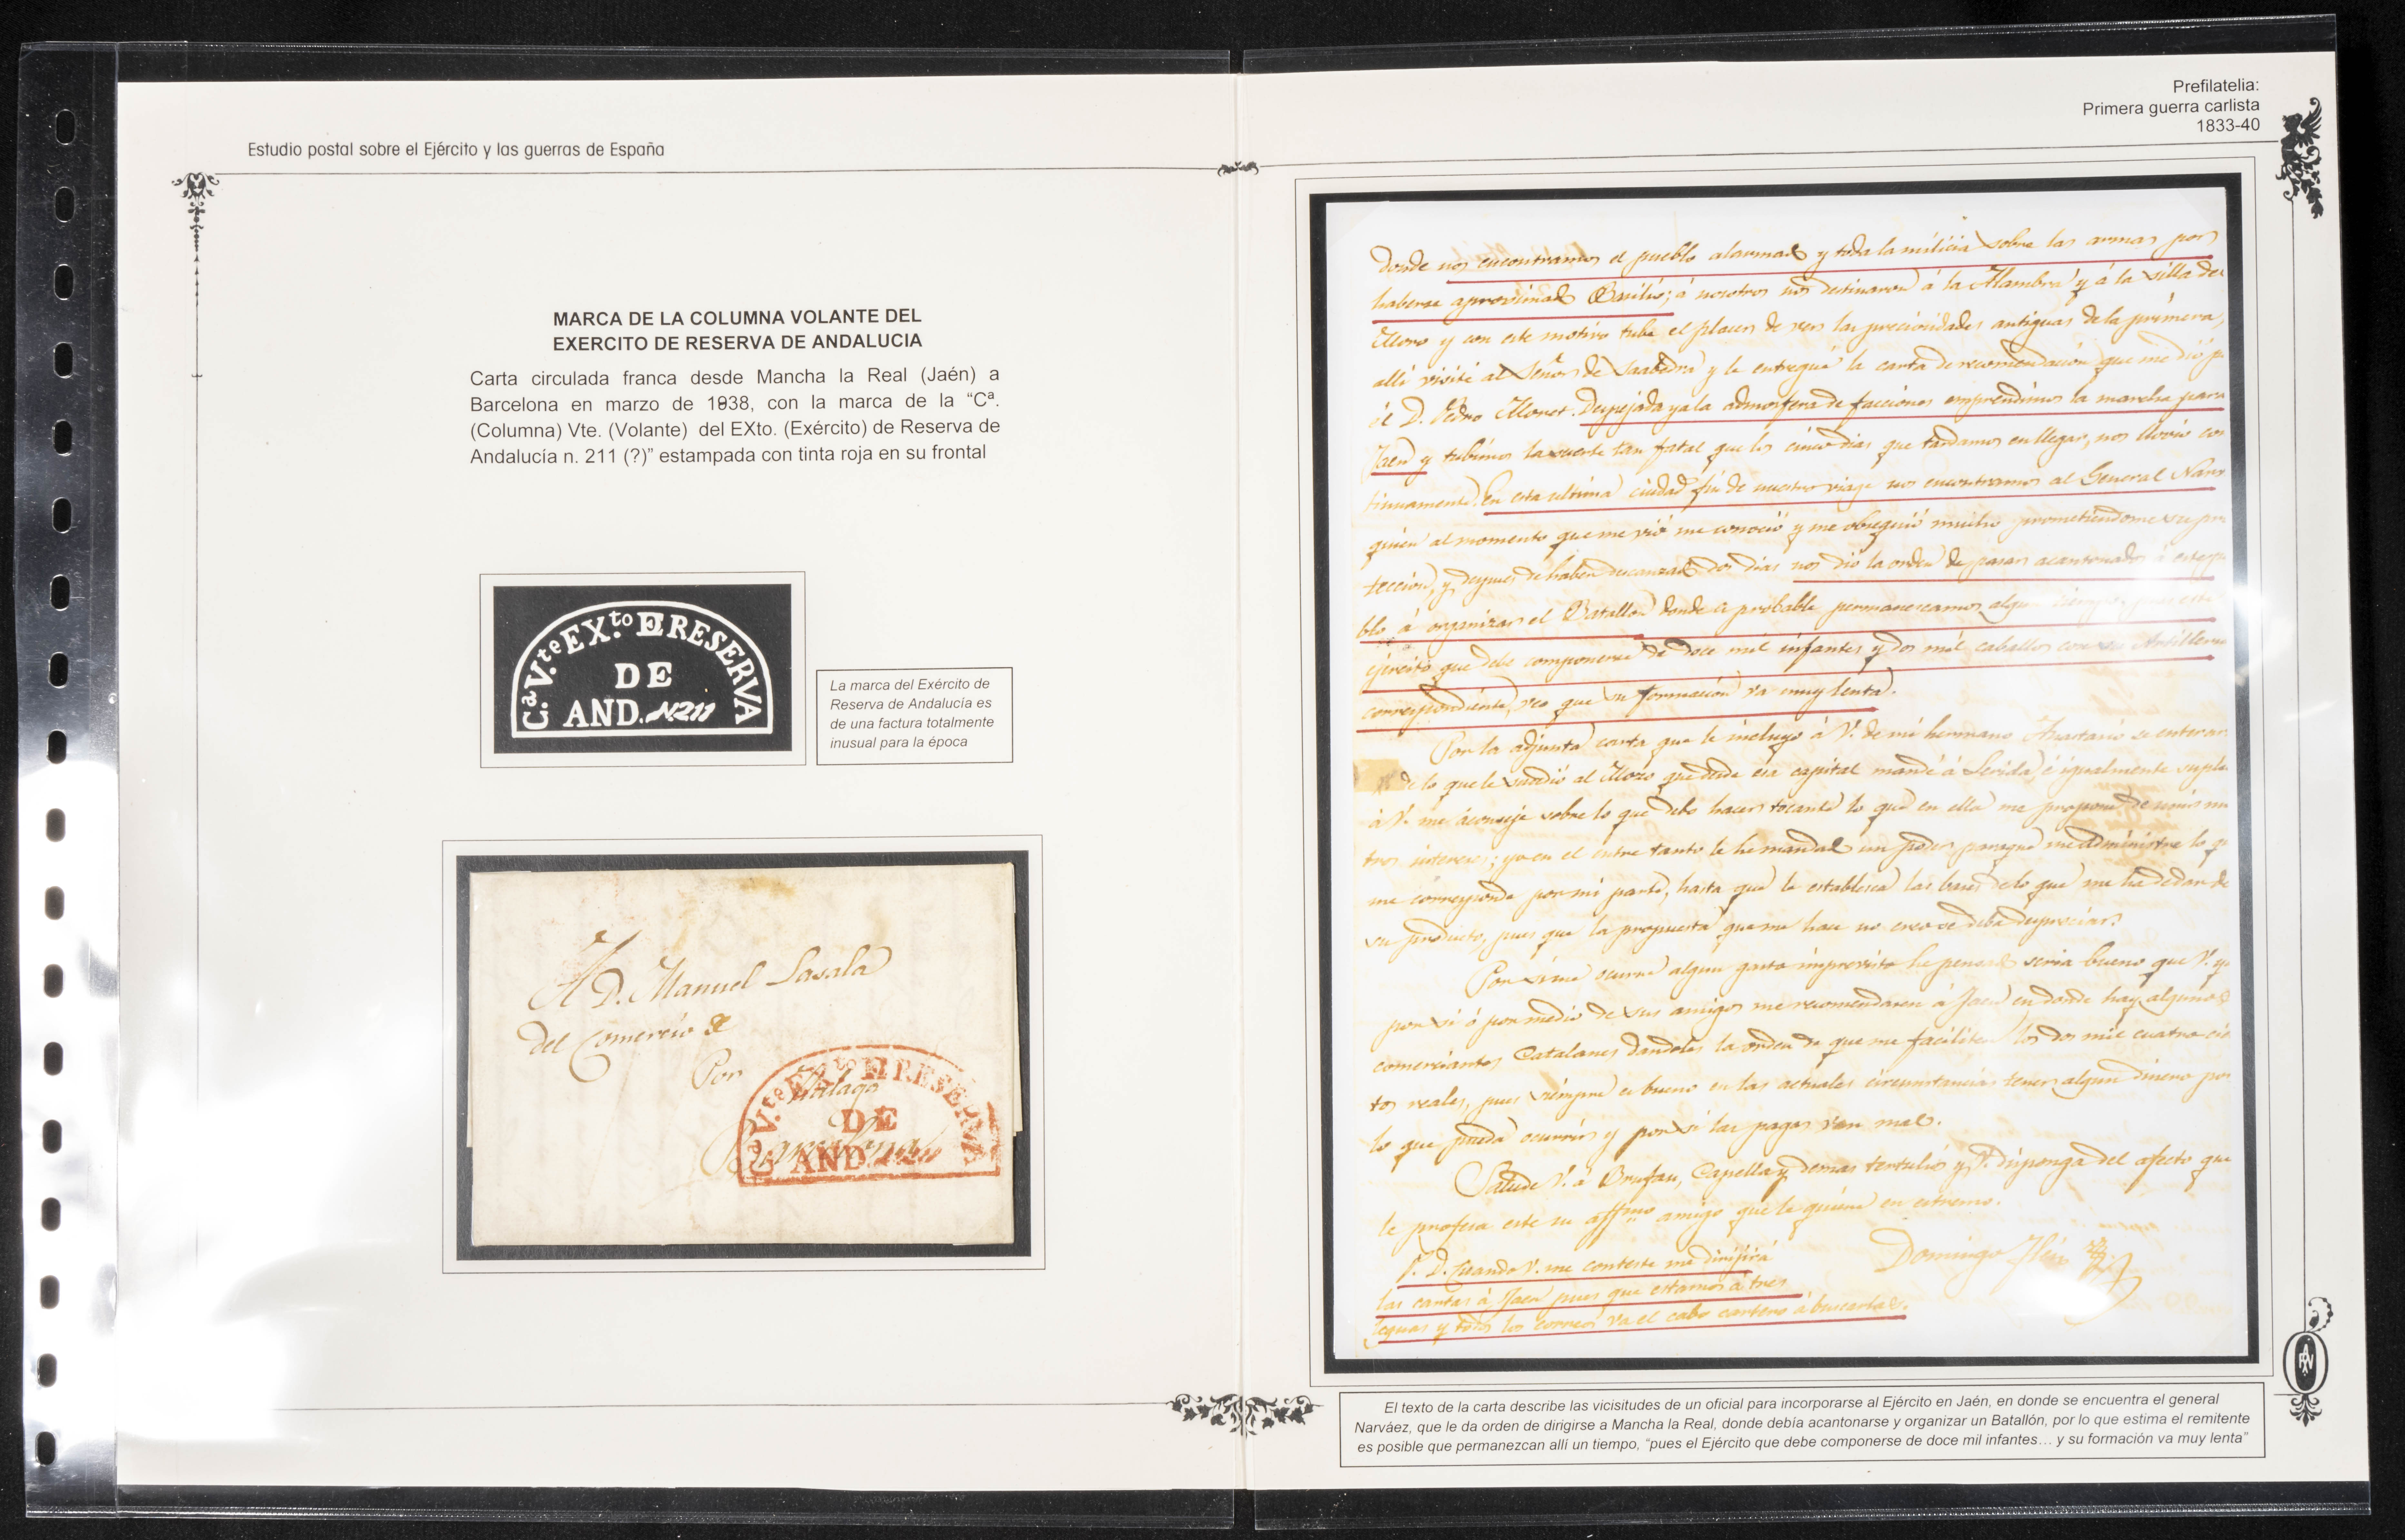 Estudio postal sobre el Ejército y las guerras de España
MARCA DE LA COLUMNA VOLANTE DEL
EXERCITO DE RESERVA DE ANDALUCIA
Carta circulada franca desde Mancha la Real (Jaén) a
Barcelona en marzo de 1838, con la marca de la “Cª.
(Columna) Vte. (Volante) del EXto. (Exército) de Reserva de
Andalucía n. 211 (?)” estampada con tinta roja en su frontal
C.a V.te EX.to DE RESERVA
DE
AND. N211
La marca del Exército de
Reserva de Andalucía es
de una factura totalmente
inusual para la época
A D. Manuel Lasala
del Comercio de
Por Malaga
Barcelona
C.a V.te EX.to DE RESERVA
DE
AND.
Prefilatelia:
Primera guerra carlista
1833-40
donde nos encontramos el pueblo alarmado y toda la milicia sobre las armas por
haberse aproximado Basilio; á nosotros nos destinaron á la Alambra y á la silla del
Moro y con este motivo tube el placer de ver las preciosidades antiguas de la primera,
allí visité al Señor de Saabedra y le entregué la carta de recomendacion que me dió pa
él D. Pedro Monet. Despejada ya la admosfera de facciones emprendimos la marcha para
Jaen y tubimos la suerte tan fatal que los cinco dias que tardamos en llegar, nos llovió con
tinuamente. En esta ultima ciudad fin de nuestro viage nos encontramos al General Narv
quien al momento que me vió me conoció y me obsequió mucho prometiendome su pro
teccion, y despues de haber descanzado dos dias nos dió la orden de pasar acantonados á este pu
blo á organizar el Batallon donde es probable permanescamos algun tiempo, pues este
ejercito que debe componerse de doce mil infantes y dos mil caballos con su Artilleria
correspondiente, veo que su formacion va muy lenta.
Por la adjunta carta que le incluyo á V. de mi hermano Anastasio se enterar
de lo que le sucedió al Mozo que desde esa capital mandé á Lerida, é igualmente suplo
á V. me áconseje sobre lo que debo hacer tocante lo que en ella me propone de
tros intereses; yo en el entre tanto le he mandado un poder paraque me administre lo q
me corresponde por mi parte, hasta que le establesca las bases de lo que me ha de dar de
su producto, pues que la propuesta que me hace no creo se deba despreciar.
Por si me ocurre algun gasto imprevisto he pensado seria bueno que V. ya
por si ó por medio de sus amigos me recomendasen á Jaen en donde hay algunos
comerciantes Catalanes dandoles la orden de que me faciliten los dos mil cuatro cie
tos reales, pues siempre es bueno en las actuales circunstancias tener algun dinero por
lo que pueda ocurrir y por si las pagas van mal.
Salude V. á Brufau, Capella y demas tertulios y V. disponga del afecto que
le profesa este su affmo amigo que le quiere en estremo.
Domingo
P. D. Cuando V. me conteste me dirijirá
las cartas á Jaen pues que estamos á tres
leguas y todos los correos va el cabo cartero á buscarlas.
El texto de la carta describe las vicisitudes de un oficial para incorporarse al Ejército en Jaén, en donde se encuentra el general
Narváez, que le da orden de dirigirse a Mancha la Real, donde debía acantonarse y organizar un Batallón, por lo que estima el remitente
es posible que permanezcan allí un tiempo, “pues el Ejército que debe componerse de doce mil infantes… y su formación va muy lenta”